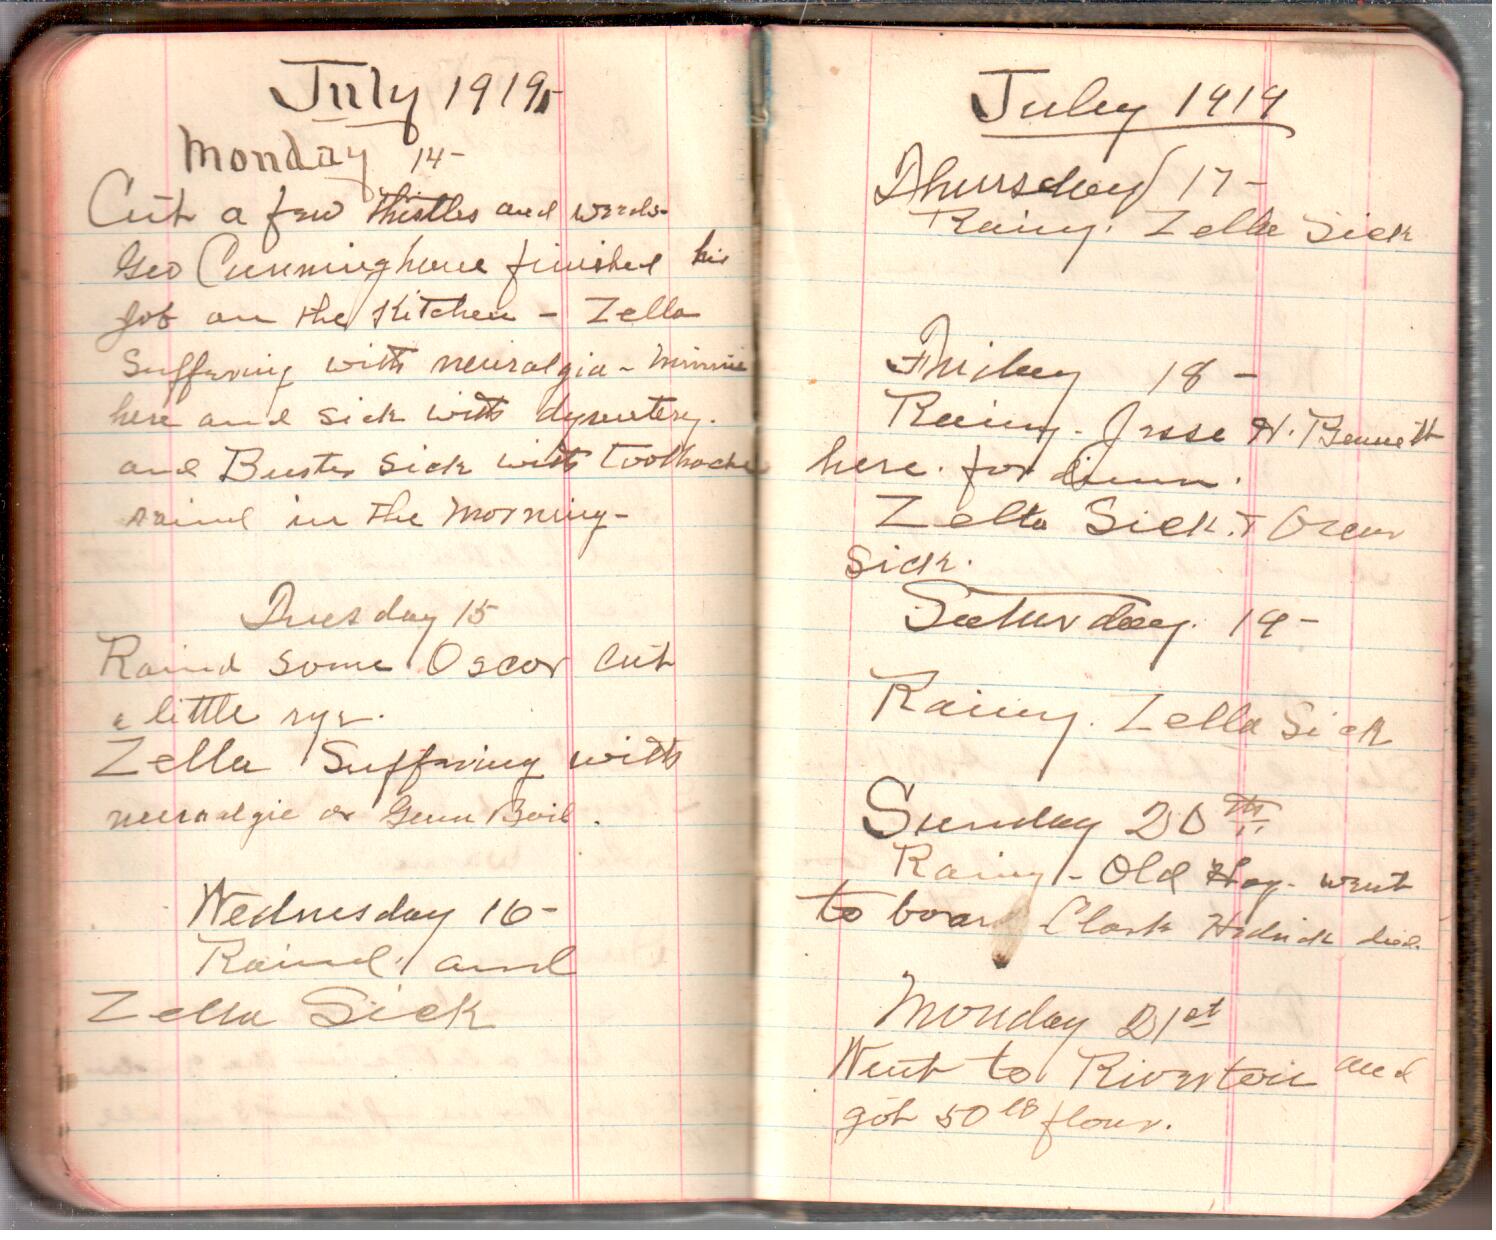 July 1919-
Monday 14-
Cut a few thistles and weeds-
Geo Cunninghame finished his
job on the Kitchen - Zella
Suffering with neuralgia - Minnie
here and sick with dysentery.
and Buster Sick with toothache
raind in the Morning-
Tuesday 15
Raind some Oscar cut
a little rye.
Zella Suffering with
neuralgie or Gum Boil.
Wednesday 16-
Raind. and
Zella Sick
July 1919
Thursday 17-
Rainy. Zella Sick
Friday 18-
Rainy. Jesse H. Bennett
here. for dinn.
Zella Sick. & Oscar
Sick.
Saturday. 19-
Rainy. Zella Sick
Sunday 20th
Rainy - Old Hog. went
to boar Clark Hedrick died.
Monday 21st
Went to Riverton and
got 50 lb flour.